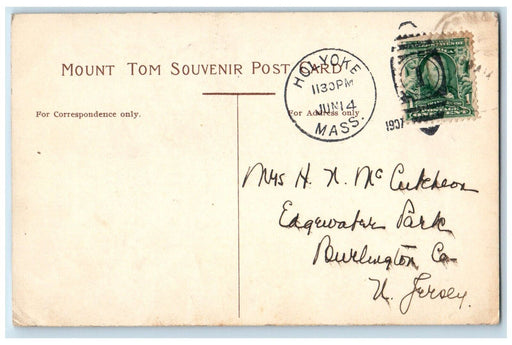 MOUNT TOM SOUVENIR POST CARD
HOLYOKE
1130PM
JUN 14
MASS.
1907
For Correspondence only.
For Address only
Mrs H. N. McCutcheon
Edgewater Park
Burlington Co
N. Jersey.